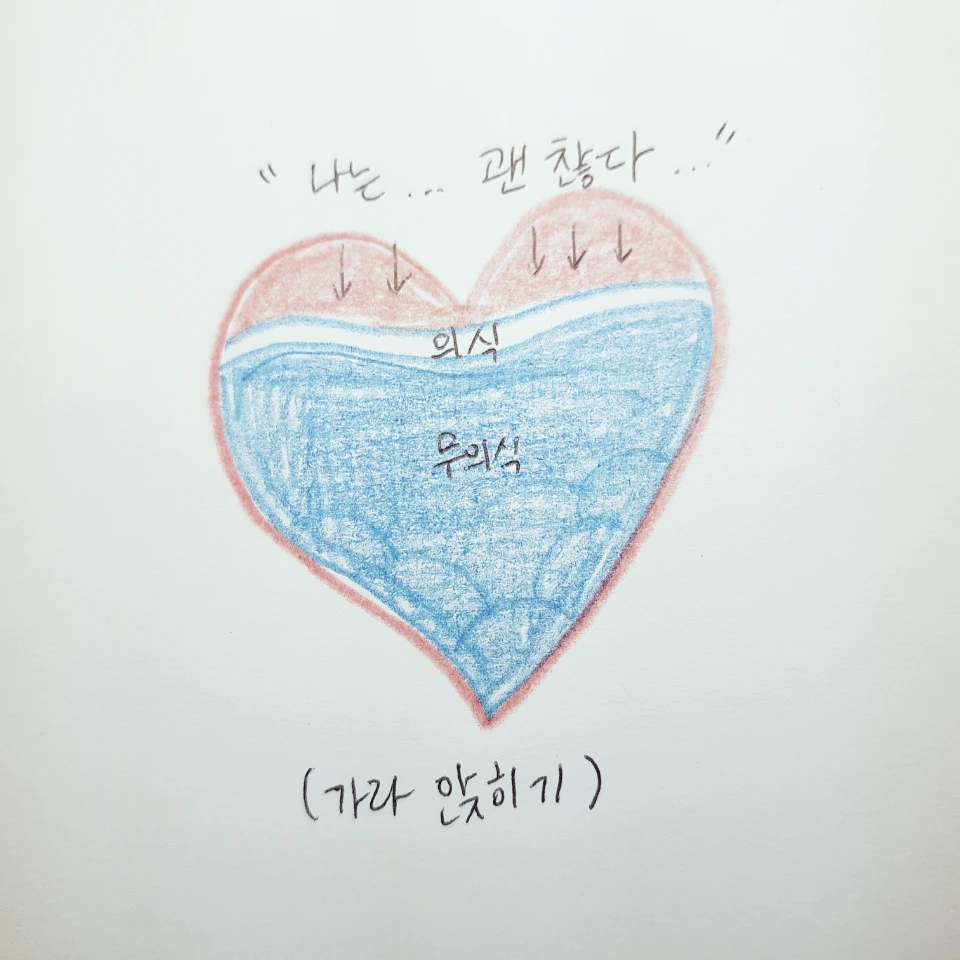 " 나는 ... 괜찮다 ... "
의식
무의식
(가라 앉히기)